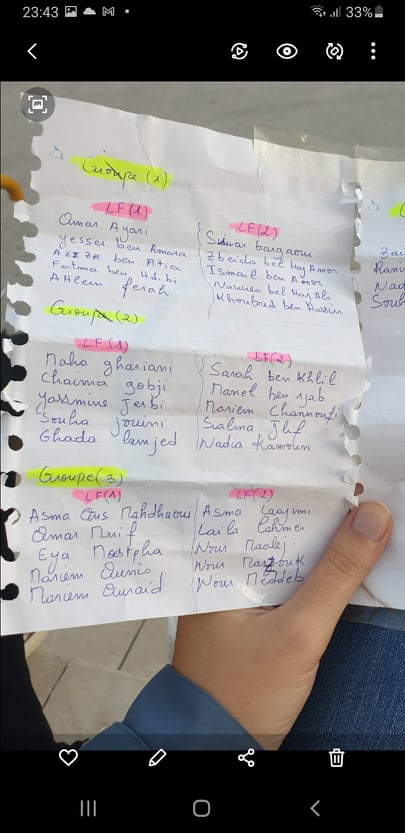 23:43
33%
Groupe (1)
LF(1)
Omar Ayari
yesser ben Amara
AZZA ben Atia
Fatma ben Hdib
AHlem ferah
LF(2)
Siwar bargaoui
Zbeida bel Haj Amor
Ismail ben Amor
Nawres bel Haj Ali
Khouloud ben Hassin
Groupe (2)
LF(1)
Maha ghariani
Chaima gobji
yassmine Jerbi
Souha jouini
Ghada lamjed
LF(2)
Sarah ben Khlil
Manel ben rjab
Mariem Channoufi
Salma Jlif
Nadia Kamoun
Groupe (3)
LF(1)
Asma Ons Mahdhaoui
Omar Mrif
Eya Mostpha
Mariem Ounis
Mariem Ouraid
LF(2)
Asma Laajmi
Laila Lahmer
Nour Maalej
Nour Marzouk
Nour Meddeb
Zai
Rani
Nad
Souh